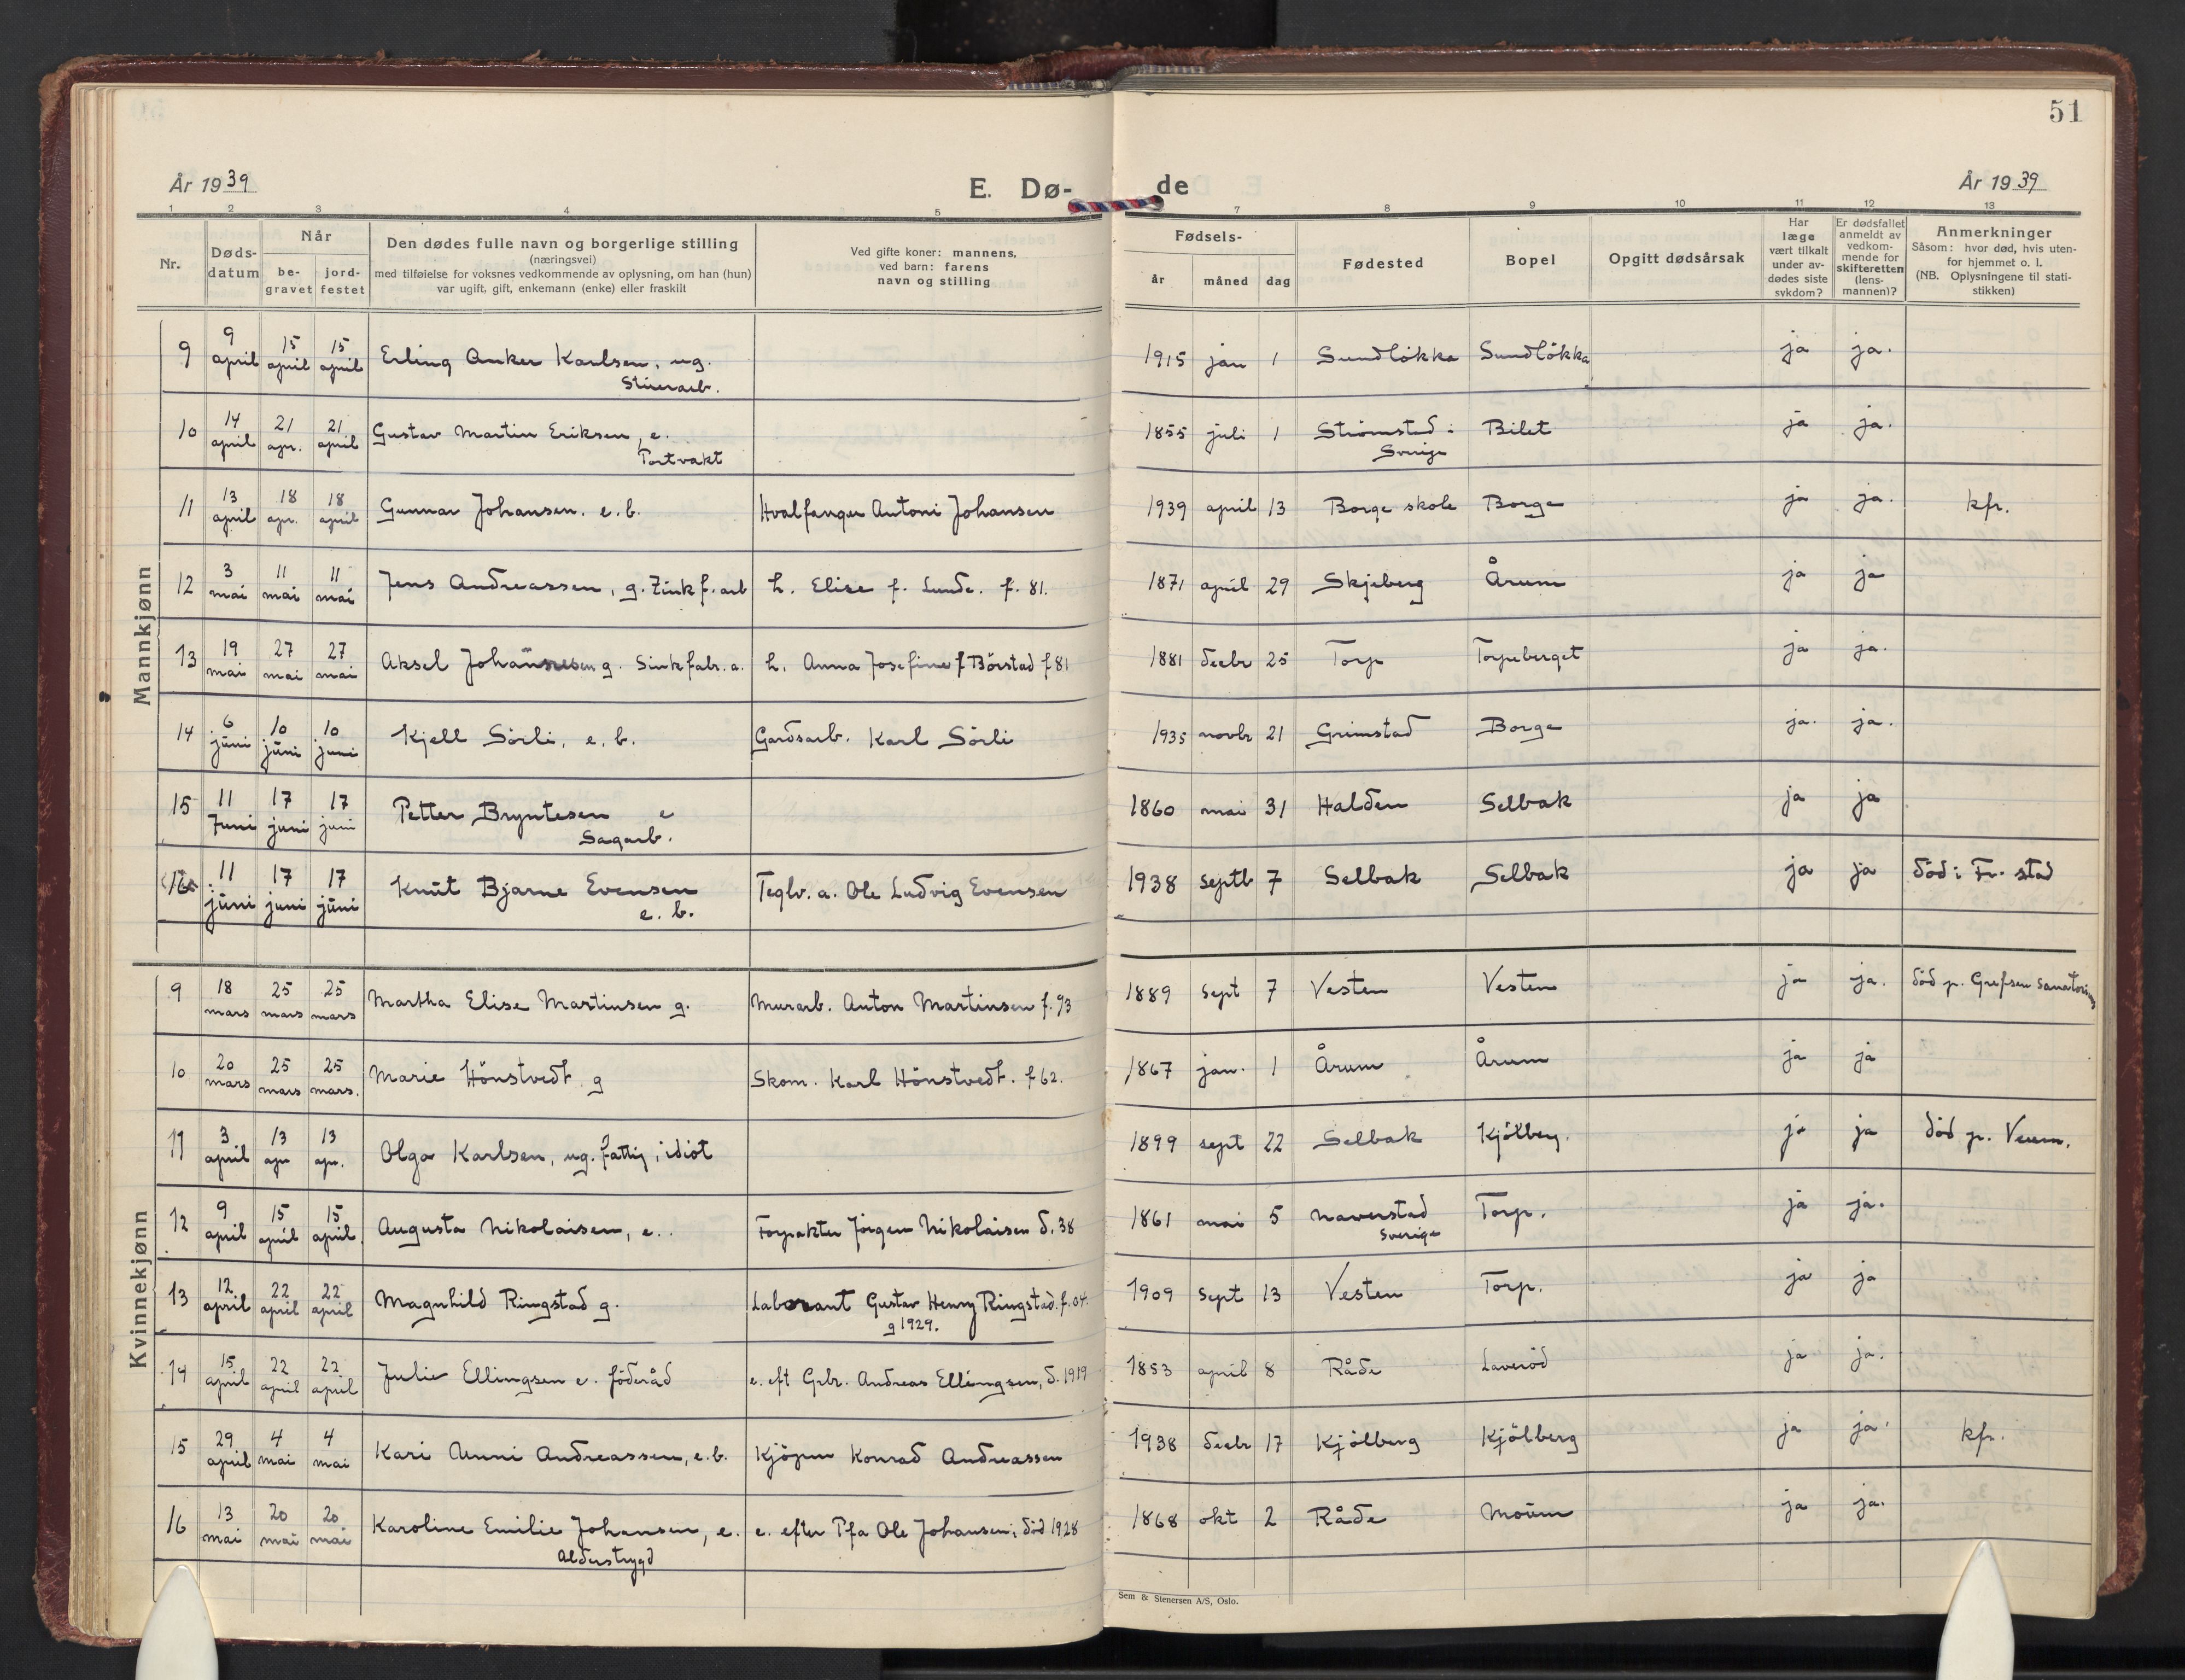 51
År 1939 E. Dø- de År 1939
1 2 3 4 5 7 8 9 10 11 12 13
Nr. Døds-datum Når be-gravet jord-festet Den dødes fulle navn og borgerlige stilling (næringsvei) med tilføielse for voksnes vedkommende av oplysning, om han (hun) var ugift, gift, enkemann (enke) eller fraskilt Ved gifte koner: mannens, ved barn: farens navn og stilling Fødsels- år måned dag Fødested Bopel Opgitt dødsårsak Har læge vært tilkalt under av-dødes siste sykdom? Er dødsfallet anmeldt av vedkom-mende for skifteretten (lens-mannen)? Anmerkninger Såsom: hvor død, hvis uten-for hjemmet o. l. (NB. Oplysningene til stati-stikken)
Mannkjønn
9 9 april 15 april 15 april Erling Anker Karlsen, ug. 1915 jan 1 Sundløkka Sundløkka ja ja.
10 14 april 21 apr. 21 april Gustav Martin Eriksen, e. Portvakt 1855 juli 1 Strömstad i Sverige Bilet ja ja.
11 13 april 18 apr. 18 april Gunnar Johansen. e. b. Hvalfanger Antoni Johansen 1939 april 13 Borge skole Borge ja ja. kfr.
12 3 mai 11 mai 11 mai Jens Andreassen, g. Zinkf. arb h. Elise f. Lunde. f. 81. 1871 april 29 Skjeberg Årum ja ja
13 19 mai 27 mai 27 mai Aksel Johannesen g. Sinkfabr. a. h. Anna Josefine f Börstad f 81 1881 decbr 25 Torp Torpeberget ja ja.
14 6 juni 10 juni 10 juni Kjell Sörli, e. b. Gardsarb. Karl Sörli 1935 novbr 21 Grimstad Borge ja. ja.
15 11 Juni 17 juni 17 juni Petter Bryntesen e Sagarb. 1860 mai 31 Halden Selbak ja ja
16 11 juni 17 juni 17 juni Knut Bjarne Evensen e. b. Teglv. a. Ole Ludvig Evensen 1938 septb 7 Selbak Selbak ja ja död i Fr. stad
Kvinnekjønn
9 18 mars 25 mars 25 mars Martha Elise Martinsen g. Murarb. Anton Martinsen f. 93 1889 sept 7 Vesten Vesten ja ja. död p. Grefsen Sanatorium
10 20 mars 25 mars 25 mars. Marie Hönstvedt g Skom. Karl Hönstvedt. f 62. 1867 jan. 1 Årum Årum ja ja
11 3 april 13 apr 13 apr. Olga Karlsen, ug. fattig, idiot 1899 sept 22 Selbak Kjölberg. ja ja död p. Veum.
12 9 april 15 april 15 april. Augusta Nikolaisen, e.. Forpakter Jörgen Nikolaisen d. 38 1861 mai 5 Naverstad Sverige Torp. ja ja.
13 12 april 22 april 22 april Magnhild Ringstad g. Laborant Gustav Henry Ringstad. f. 04. g 1929. 1909 Sept 13 Vesten Torp. ja ja
14 15 april 22 april 22 april Julie Ellingsen e. föderåd e. eft Grbr. Andreas Ellingsen, d. 1919 1853 april 8 Råde Laveröd ja ja.
15 29 april 4 mai 4 mai Kari Unni Andreassen, e. b. Kjöpm Konrad Andreassen 1938 decbr 17 Kjölberg Kjölberg ja ja kfr.
16 13 mai 20 mai 20 mai Karoline Emilie Johansen, e. Alderstrygd e. efter Pfa Ole Johansen; död 1928 1868 okt 2 Råde Moum ja ja.
Sem & Stenersen A/S, Oslo.